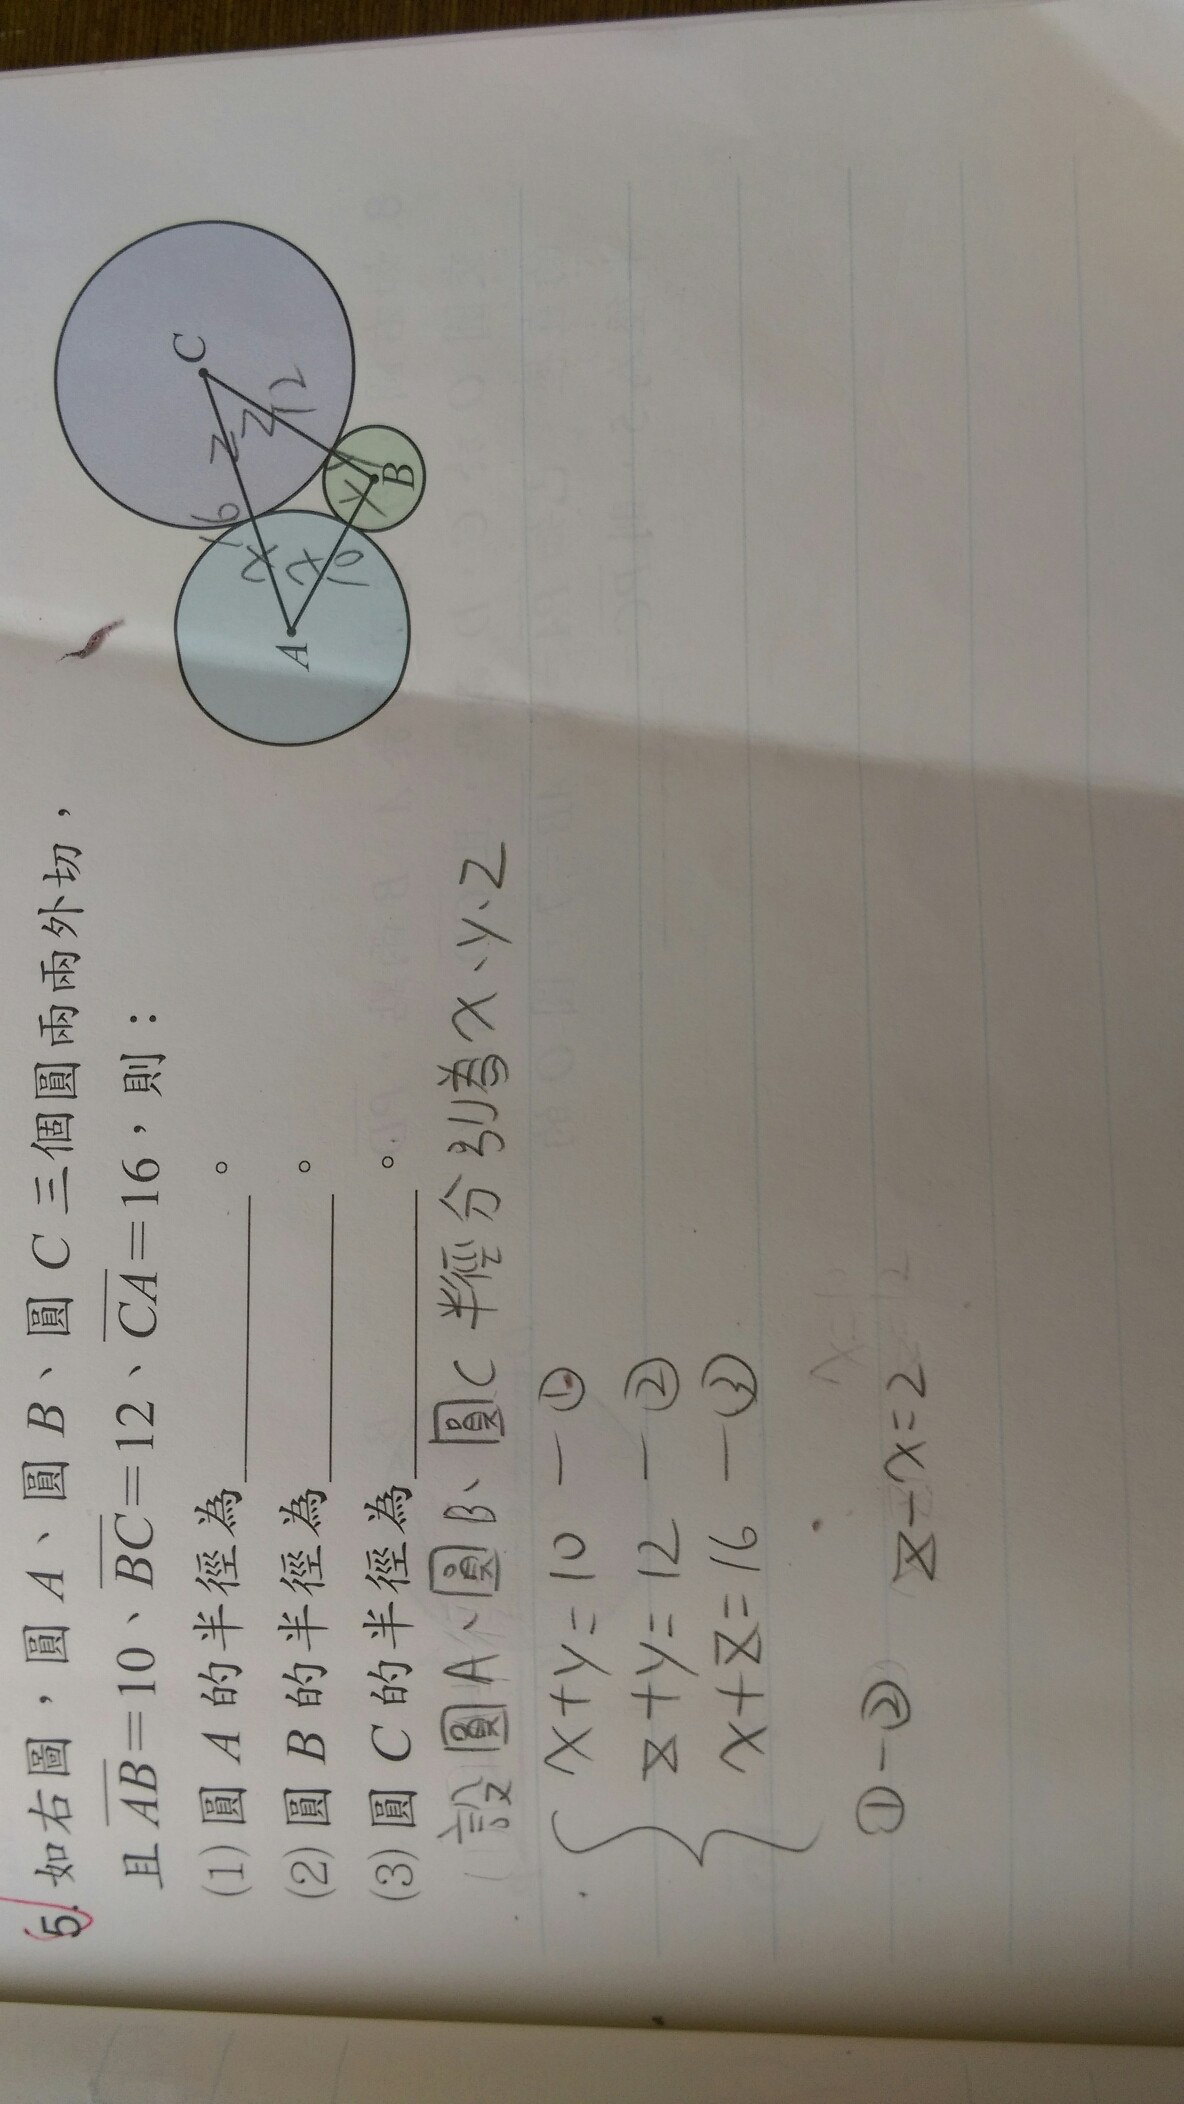 5. 如右圖，圓 A、圓 B、圓 C 三個圓兩兩外切，
且 AB=10、BC=12、CA=16，則：
(1) 圓 A 的半徑為＿＿＿＿。
(2) 圓 B 的半徑為＿＿＿＿。
(3) 圓 C 的半徑為＿＿＿＿。
A
B
C
16
x
z
x
10
y
y
z
12
設圓A、圓B、圓C半徑分別為x、y、z
x+y=10 —①
z+y=12 —②
x+z=16 —③
①-②
z-x=2